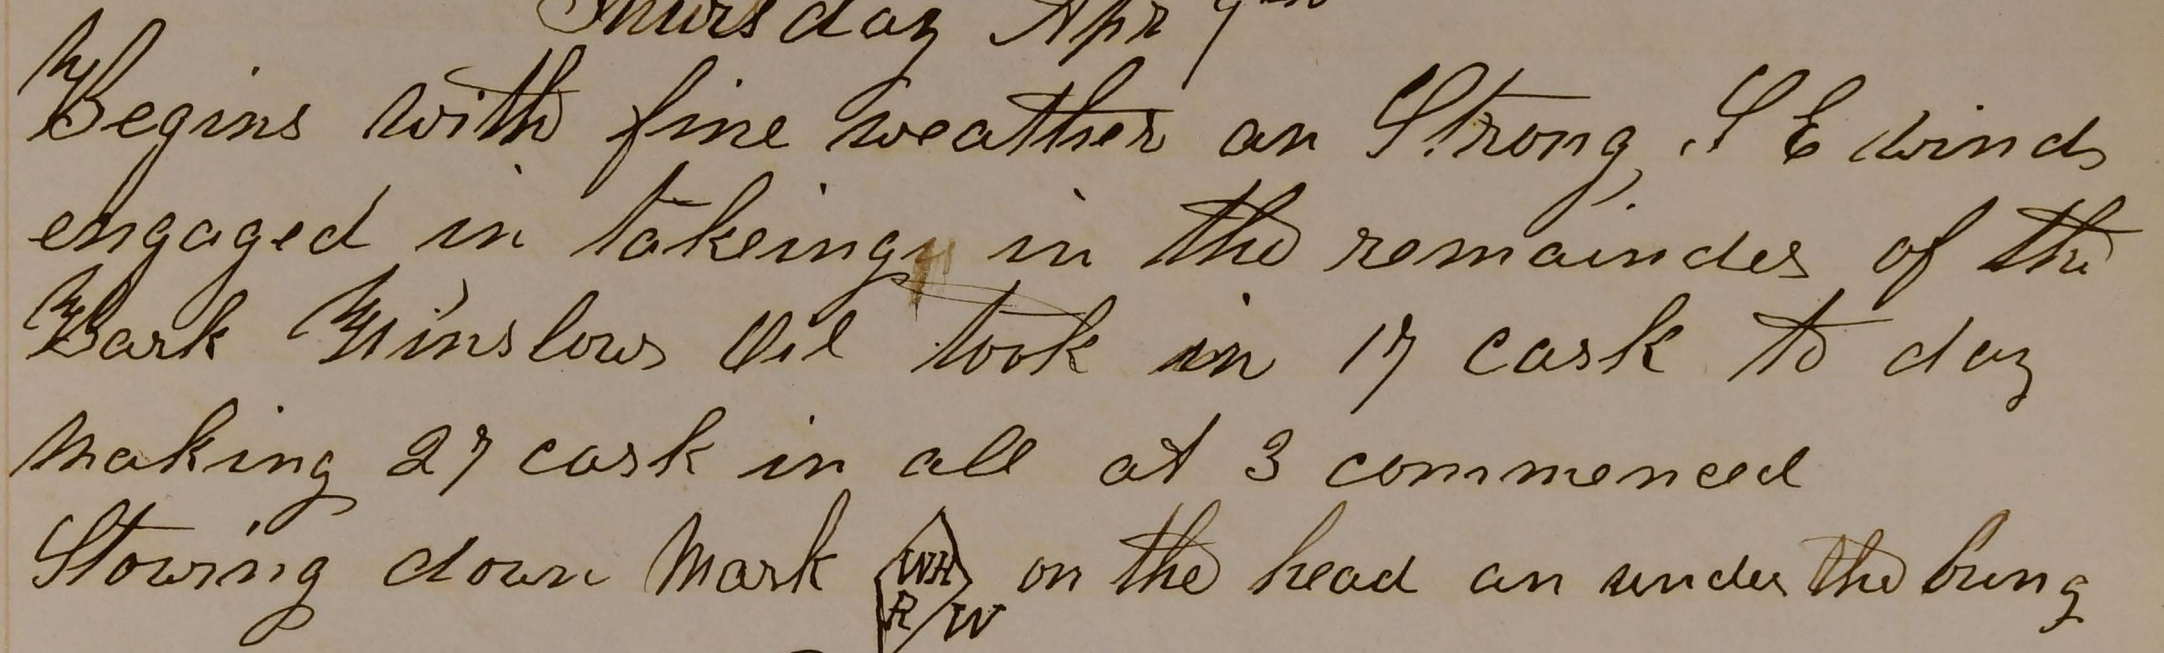 Thursday Apr 9th
Begins with fine weather an Strong S E winds
engaged in takeing in the remainder of the
Bark Winslows Oil took in 17 cask to day
making 27 cask in all at 3 commenced
Stowing down Mark WH R W on the head an under the bung